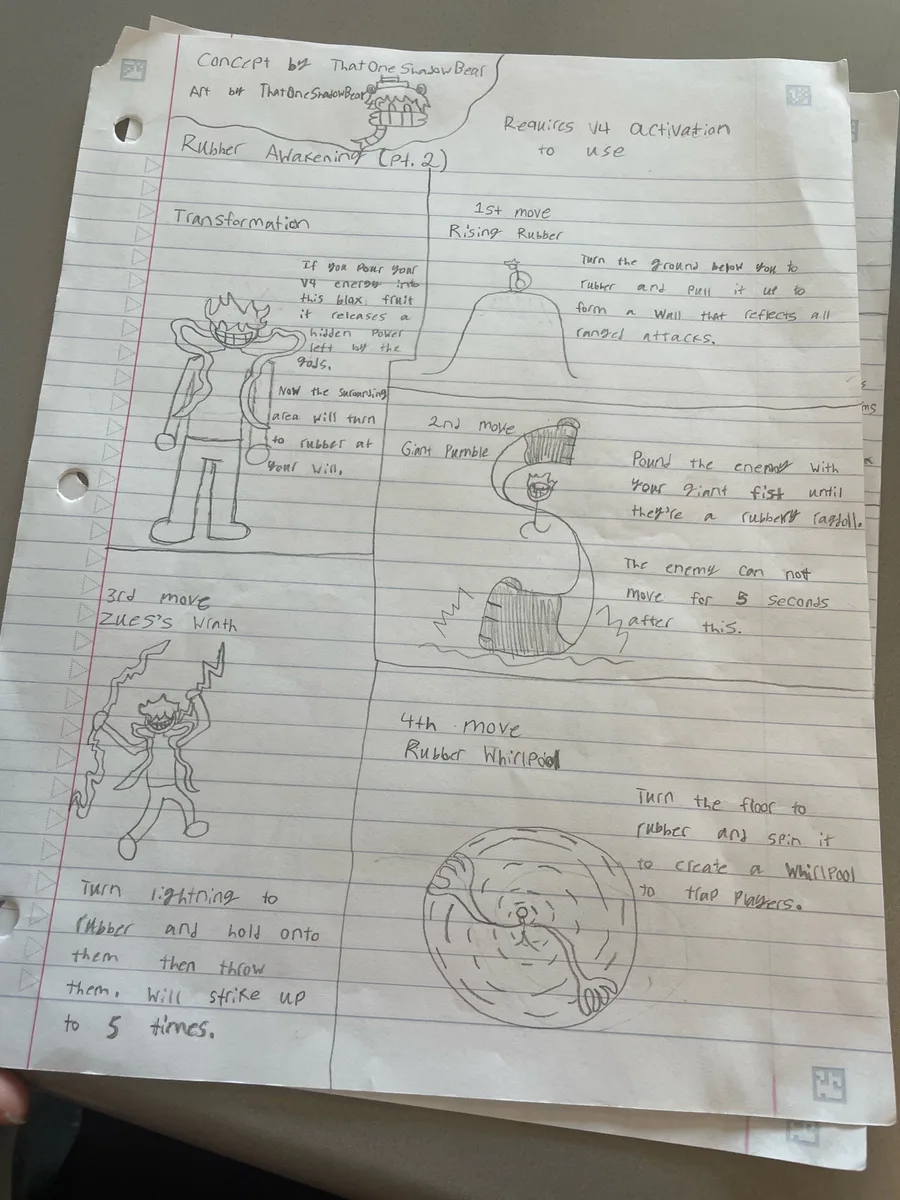 Concept by ThatOneShadowBear
Art by ThatOneShadowBear
Requires V4 activation
to use
Rubber Awakening (pt. 2)
Transformation
If you pour your
V4 energy into
this blox fruit
it releases a
hidden power
left by the
gods.
Now the surounding
area will turn
to rubber at
your will.
1st move
Rising Rubber
Turn the ground below you to
rubber and pull it up to
form a wall that reflects all
ranged attacks.
2nd move
Giant Pumble
Pound the enemy with
your giant fist until
they're a rubbery ragdoll.
The enemy can not
move for 5 seconds
after this.
3rd move
Zues's Wrath
Turn lightning to
rubber and hold onto
them then throw
them. Will strike up
to 5 times.
4th move
Rubber Whirlpool
Turn the floor to
rubber and spin it
to create a whirlpool
to trap players.